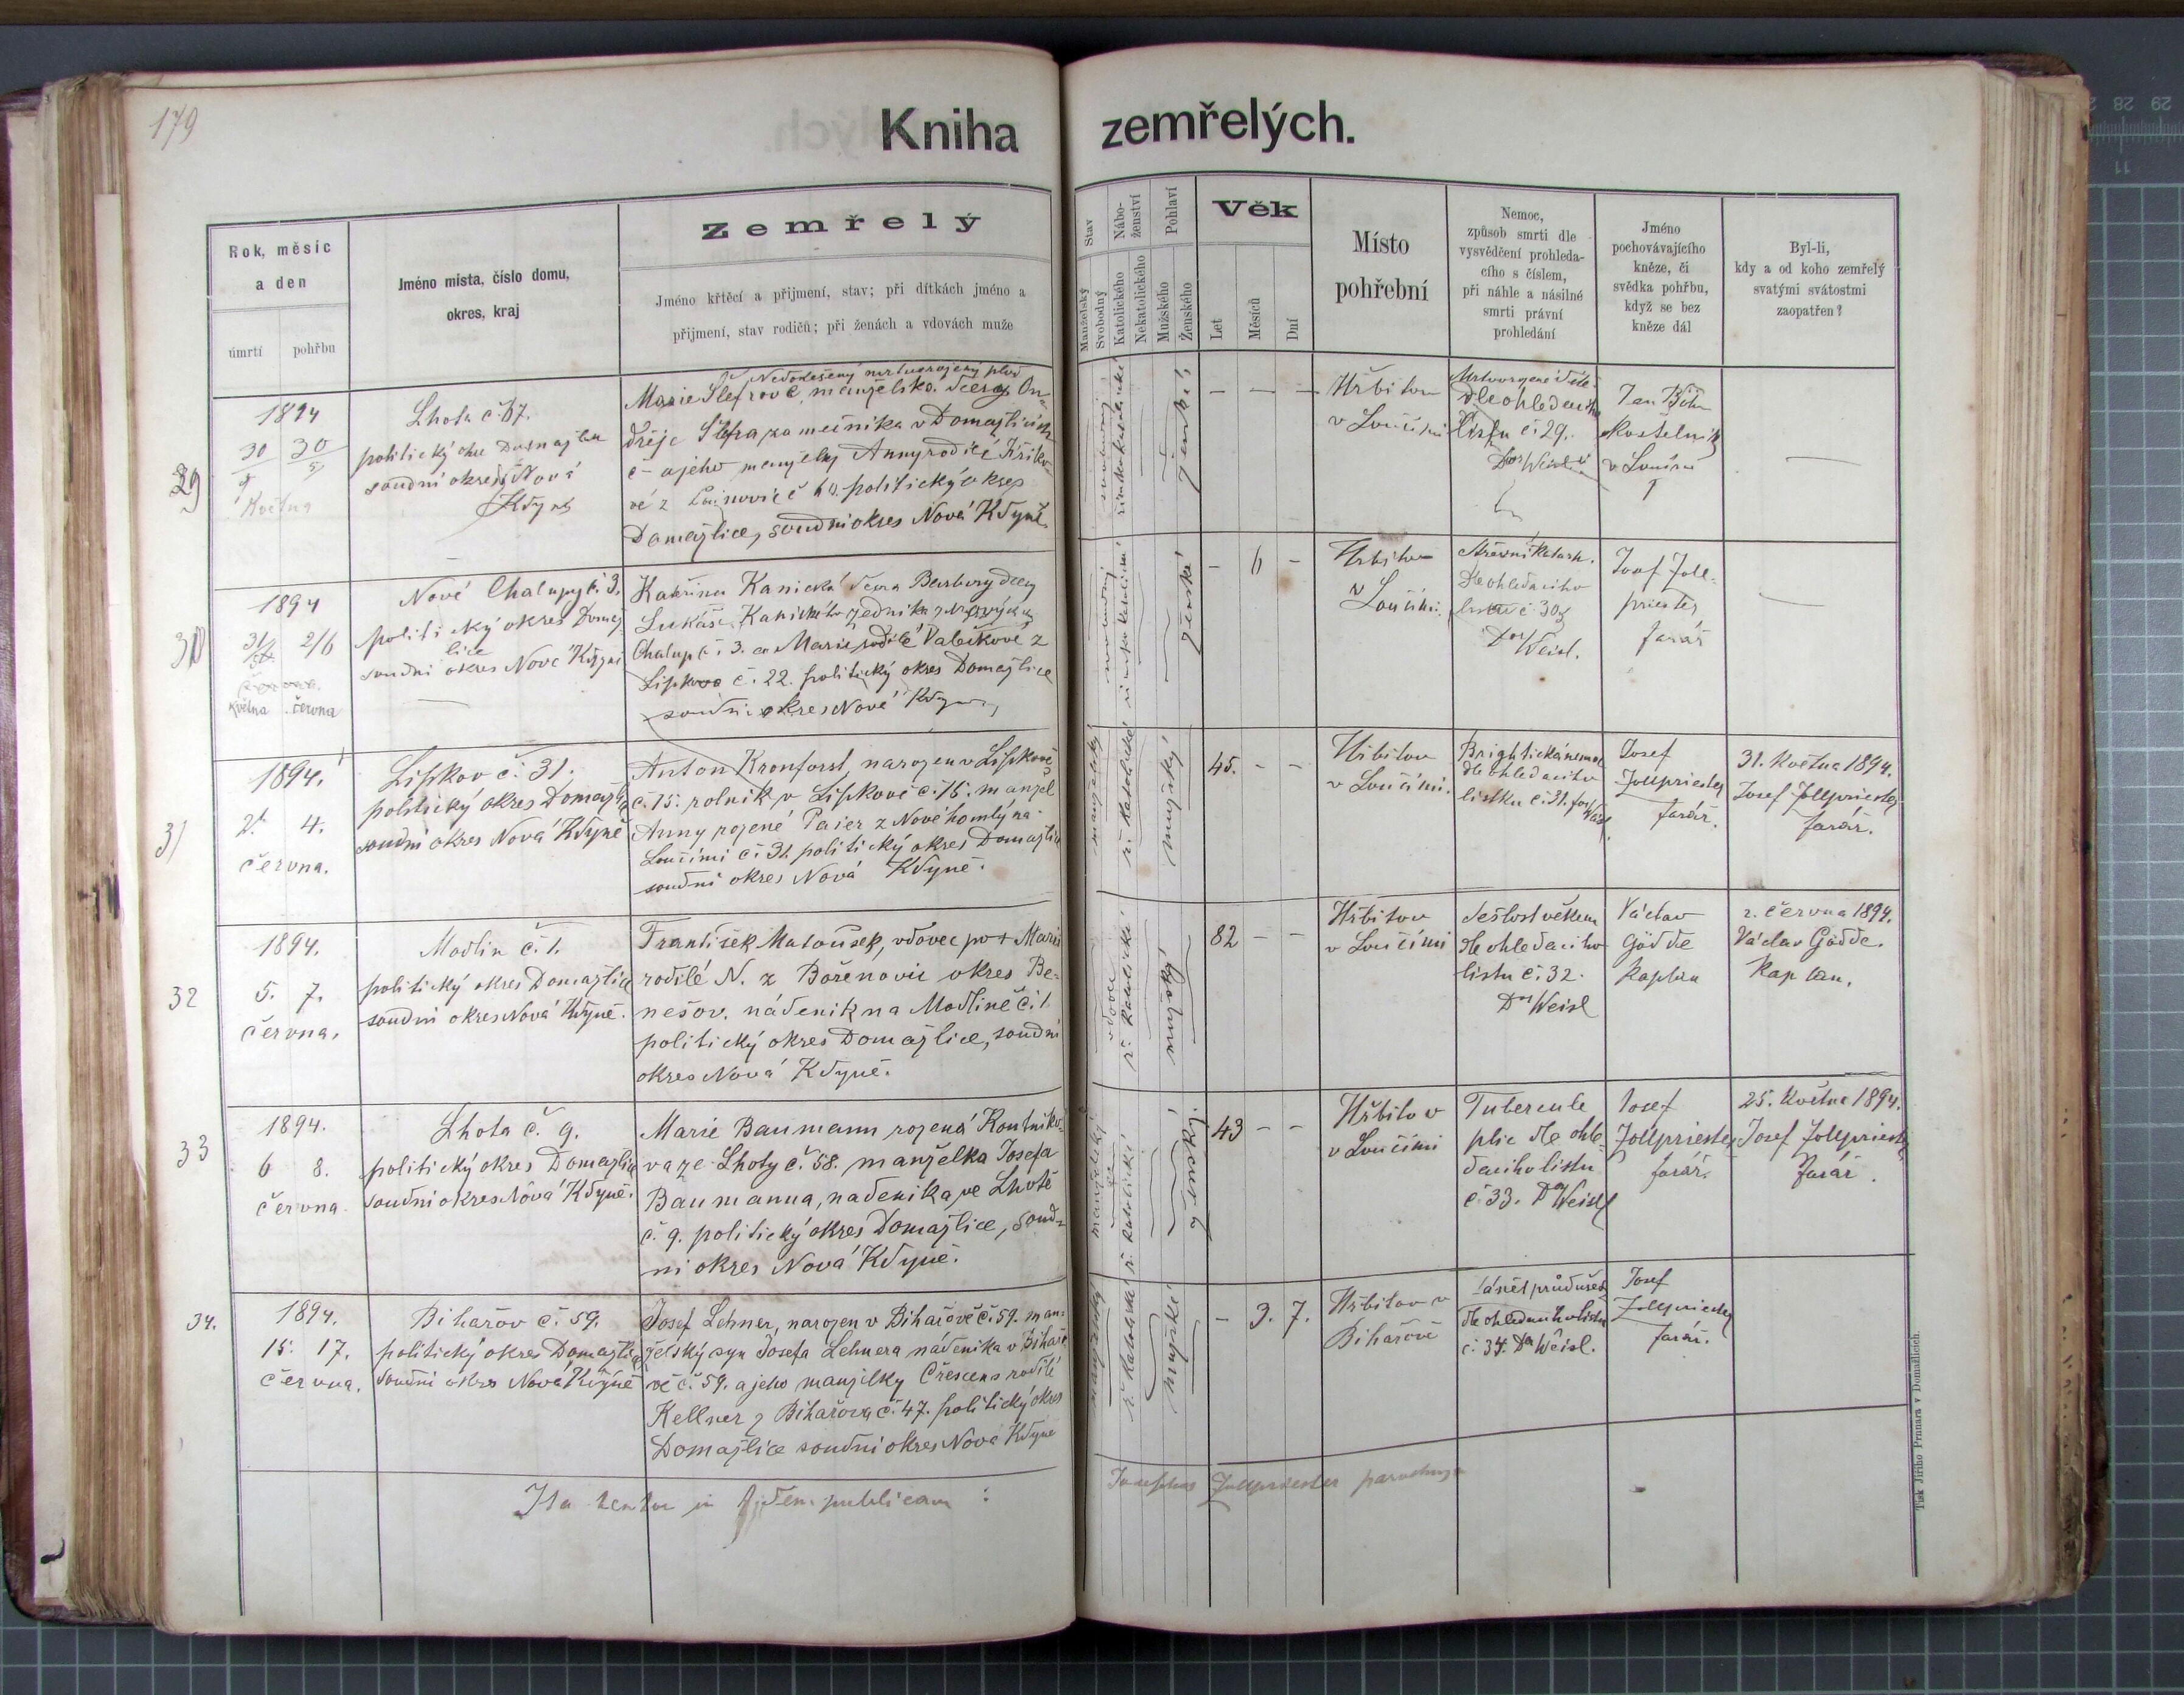 179
Kniha zemřelých.
Rok, měsíc
a den
úmrtí
pohřbu
Jméno místa, číslo domu,
okres, kraj
Zemřelý
Jméno křtěcí a přijmení, stav; při dítkách jméno a
přijmení, stav rodičů; při ženách a vdovách muže
Stav
Manželský
Svobodný
Nábo-
ženství
Katolického
Nekatolického
Pohlaví
Mužského
Ženského
Věk
Let
Měsíců
Dní
Místo
pohřební
Nemoc,
způsob smrti dle
vysvědčení prohleda-
cího s číslem,
při náhle a násilné
smrti právní
prohledání
Jméno
pochovávajícího
kněze, či
svědka pohřbu,
když se bez
kněze dál
Byl-li,
kdy a od koho zemřelý
svatými svátostmi
zaopatřen?
29
1894
30 30
5
Května
Lhota č. 67.
politický okres Domažlice
soudní okres Nová
Kdyně
Nedonešený mrtvorozený plod
Marie Šlefrová, manželská dcera On-
dřeje Šlefra zámečníka v Domažlicích
č – a jeho manželky Anny rodilé
politický okres
Domažlice, soudní okres Nová Kdyně.
ženské
– – –
Hřbitov
v Loučimi
Mrtvorozené dítě
dle ohledacího
listu č. 29.
Dor Weisl
Jan Böhm
kostelník
v Loučimi
30
1894
31/5 2/6
Května června
Nové Chalupy č. 3.
politický okres Domaž
lice
soudní okres Nová Kdyně
Kateřina Kanická dcera Barbory dcery
Lukáše Kanického zedníka z Nových
Chalup č. 3. a Marie rodilé Valečkové z
Lipkova č. 22. politický okres Domažlice
soudní okres Nové Kdyně
ženské
– 6 –
Hřbitov
v Loučimi
Střevní katarh.
dle ohledacího
listu č. 30
Dor Weisl.
Josef Zoll-
priester
farář
31
1894.
2. 4.
června.
Lipkov č. 31.
politický okres Domažlic
soudní okres Nová Kdyně
Anton Kronforst, narozen v Lipkově
č. 15. rolník v Lipkově č. 15. manžel
Anny rozené Paier z Nového mlýna
Loučimi č. 31. politický okres Domažlice
soudní okres Nová Kdyně.
manželský
ř. katolické
mužský
45. – –
Hřbitov
v Loučimi.
Brightická nemoc
dle ohledacího
lístku č. 31.
Josef
Zollpriester
farář.
31. Května 1894.
Josef Zollpriester
farář.
32
1894.
5. 7.
června.
Modlin č. 1.
politický okres Domažlice
soudní okres Nová Kdyně.
František Matoušek, vdovec po + Marii
rodilé N. z Bořenovic okres Be-
nešov. nádeník na Modlíně č. 1
politický okres Domažlice, soudní
okres Nová Kdyně.
vdovec
ř. katolické
mužský
82 – –
Hřbitov
v Loučimi
Sešlost věkem
dle ohledacího
listu č. 32.
Dor Weisl
Václav
Gödde
kaplan
2. června 1894.
Václav Gödde.
Kaplan.
33
1894.
6 8.
června
Lhota č. 9.
politický okres Domažlice
soudní okres Nová Kdyně.
Marie Baumann rozená Koutníko-
va ze Lhoty č. 58. manželka Josefa
Baumanna, nádeníka, ve Lhotě
č. 9. politický okres Domažlice, soud-
ní okres Nová Kdyně.
manželský
ř. katolické
ženský.
43 – –
Hřbitov
v Loučimi
Tubercule
plic dle ohle-
dacího listu
č. 33. Dr Weisl
Josef
Zollpriester
farář.
25. Května 1894.
Josef Zollpriester
farář.
34.
1894.
15. 17.
června.
Bihařov č. 59.
politický okres Domažlice
soudní okres Nová Kdyně
Josef Lehner, narozen v Bihařově č. 59. man-
želský syn Josefa Lehnera nádeníka v Bihařo-
vě č. 59. a jeho manželky Crescens rodilé
Kellner z Bihařova č. 47. politický okres
Domažlice soudní okres Nová Kdyně
manželský
ř. katolické
mužské
– 3. 7.
Hřbitov v
Bihařově
Zánět průdušek
dle ohledacího listu
č. 34. Dr Weisl.
Josef
Zollpriester
farář.
Ita testor in fidem publicam:
Josephus Zollpriester parochus
Tisk Jiřího Prunara v Domažlicích.